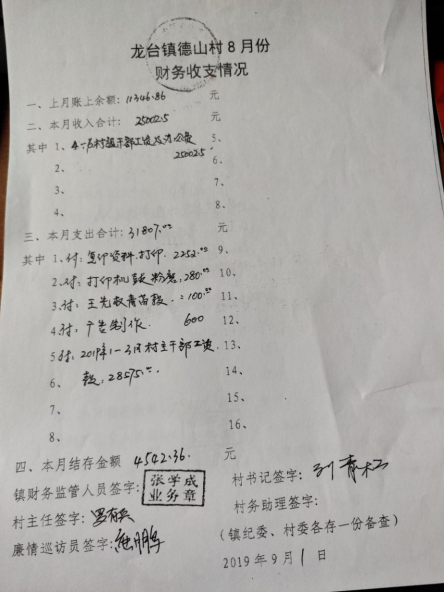 龙台镇德山村8月份
财务收支情况
一、上月账上余额: 11346.86 元
二、本月收入合计: 25002.5 元
其中 1、4-6村级干部工资及办公费 5、
25002.5
2、 6、
3、 7、
4、 8、
三、本月支出合计: 31807.00 元
其中 1、付:复印资料.打印. 2252.00 9、
2、付:打印机鼓粉. 280.00 10、
3、付:王先权青苗款. 100.00 11、
4、付:广告制作. 600 12、
5付:2019年1-3月村主干部工资 13、
6、 款:28575.00 14、
7、 15、
8、 16、
四、本月结存金额 4542.36 元
镇财务监管人员签字: 张学成 业务章 村书记签字:
村务助理签字:
村主任签字: (镇纪委、村委各存一份备查)
廉情巡访员签字: 2019年9月1日